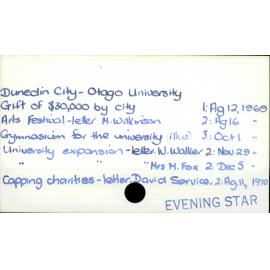 Dunedin City - Otago University
Gift of $30,000 by city 1: Ag 12, 1969
Arts Festival - letter M. Wilkinson 2: Ag 16 "
Gymnasium for the university illus) 3: Oct 1 "
University expansion - letter. W. Walker 2: Nov 29 "
" " Mrs M. Fox 2: Dec 5 "
Capping charities - letter David Service. 2: Ag 11, 1970
EVENING STAR